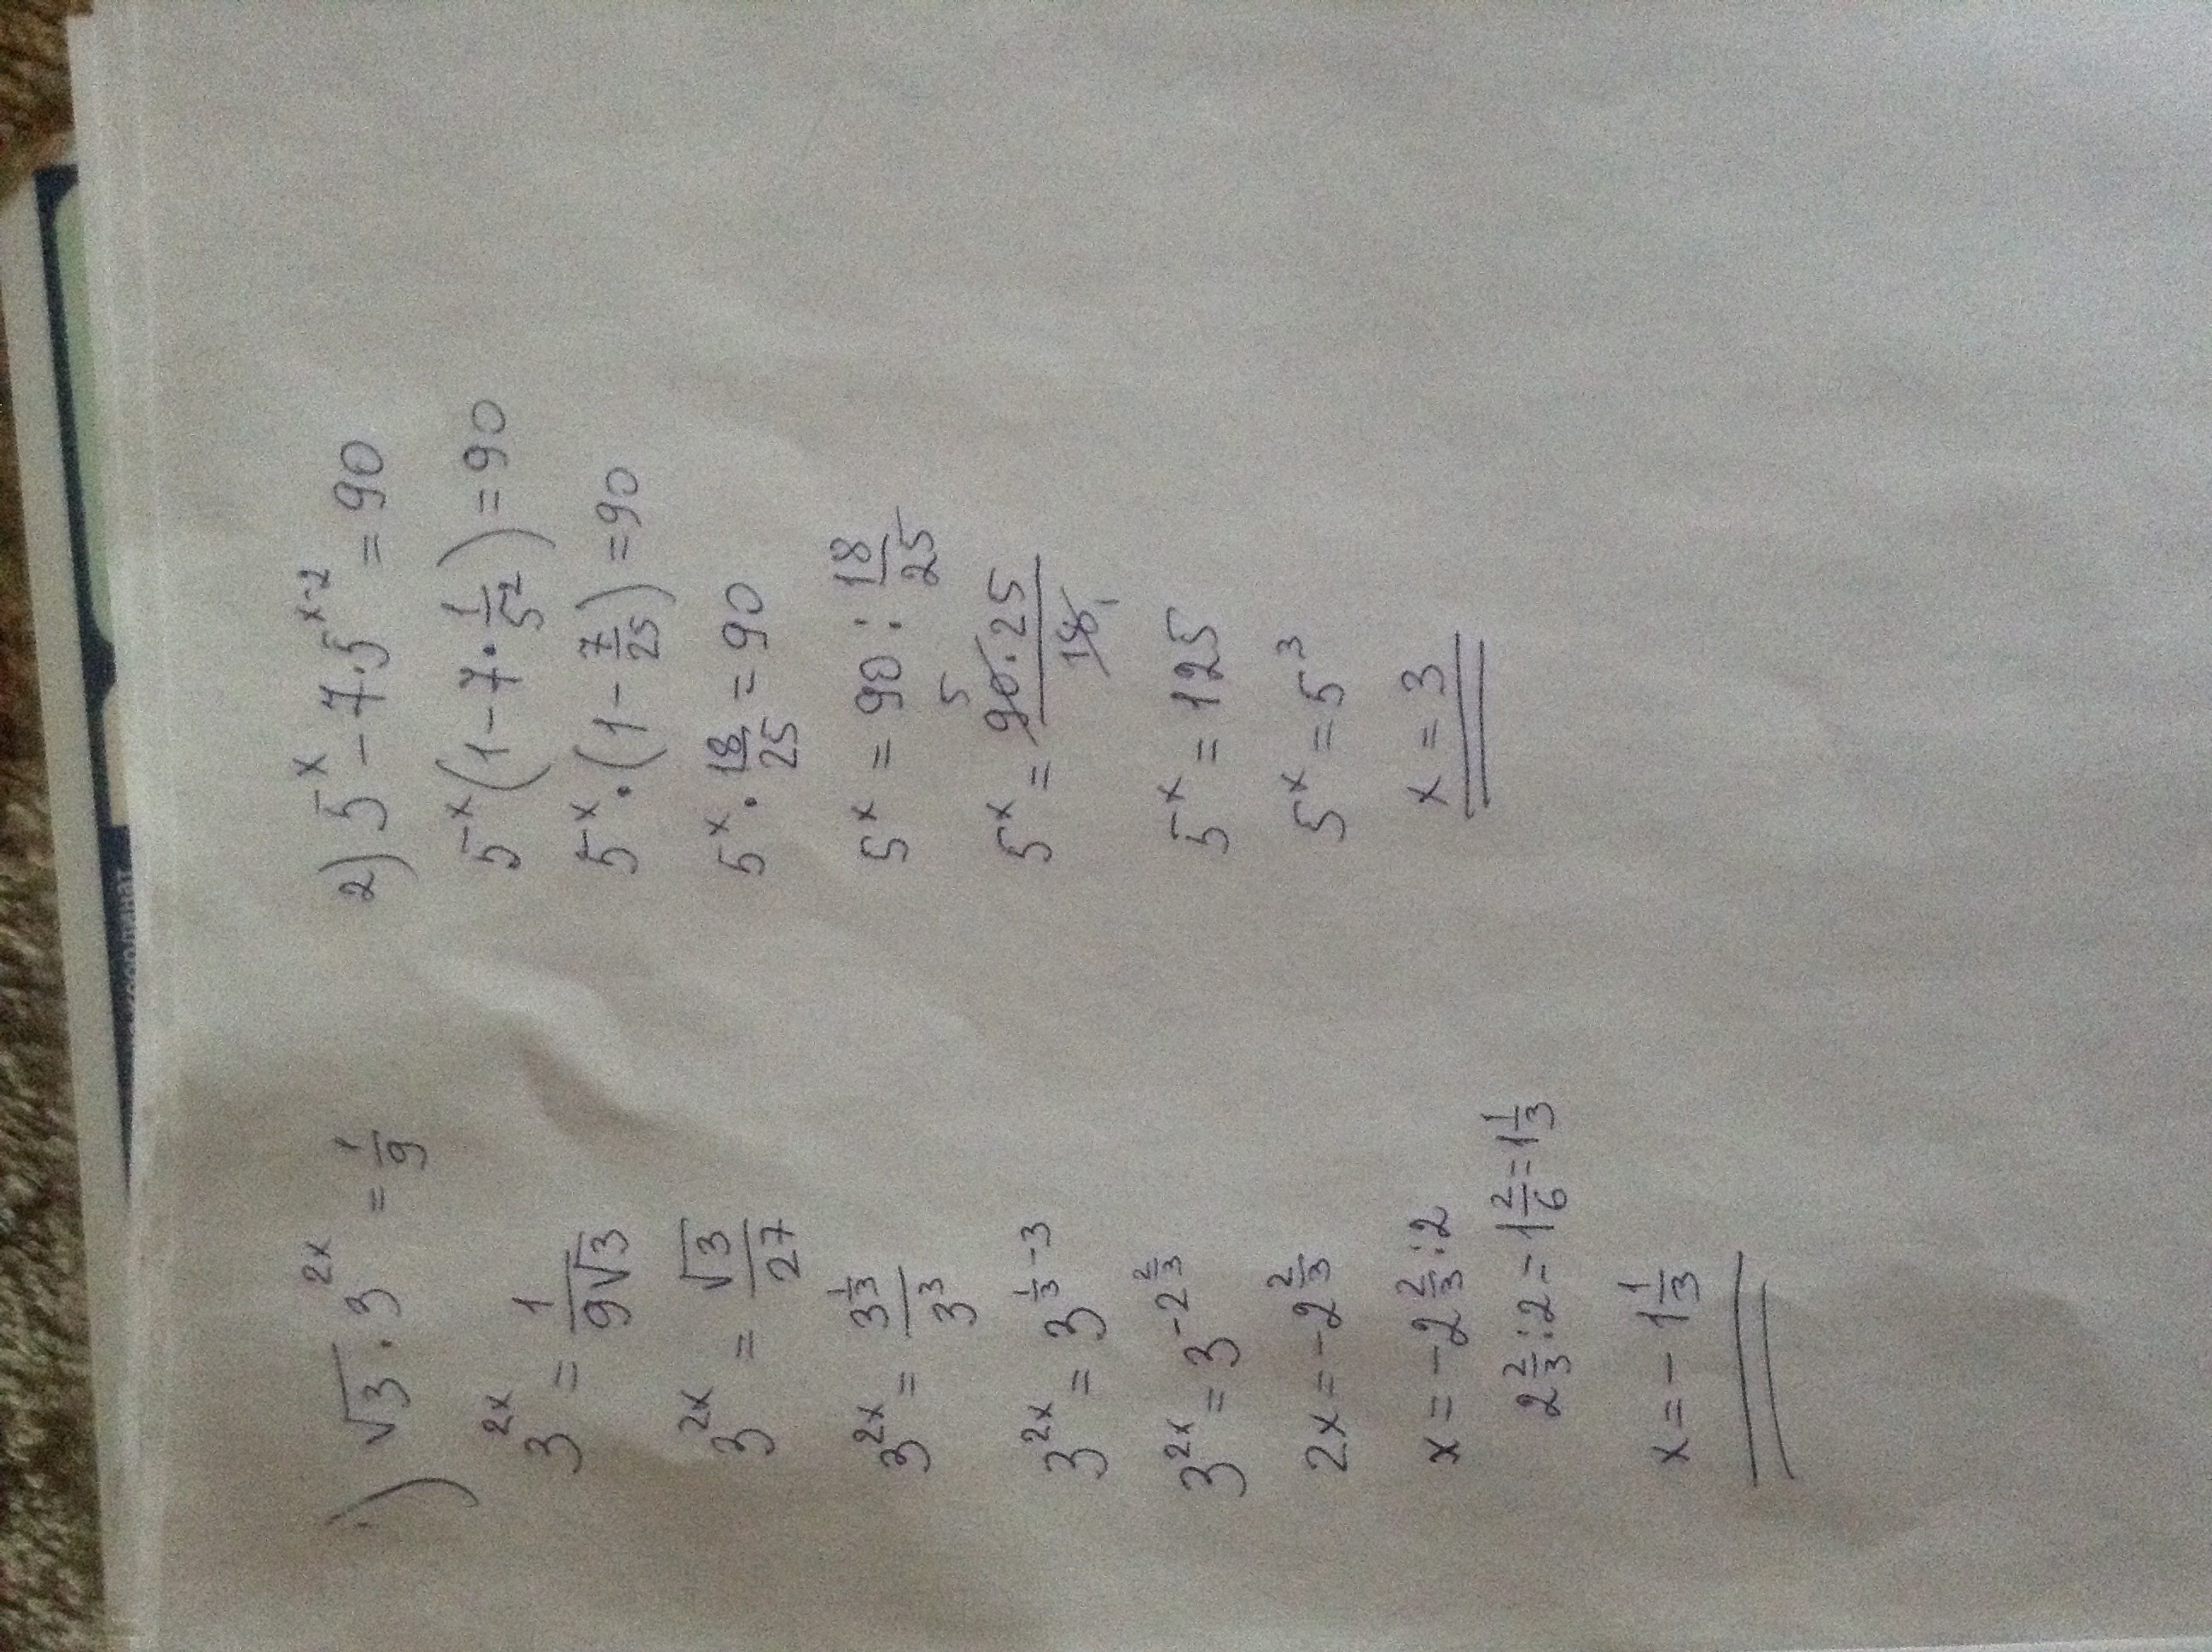 1) √3 · 3^{2x} = 1/9
3^{2x} = 1/(9√3)
3^{2x} = √3/27
3^{2x} = 3^{1/3}/3^3
3^{2x} = 3^{1/3 - 3}
3^{2x} = 3^{-2 2/3}
2x = -2 2/3
x = -2 2/3 : 2
2 2/3 : 2 = 1 2/6 = 1 1/3
x = - 1 1/3
2) 5^x - 7 · 5^{x-2} = 90
5^x (1 - 7 · 1/5^2) = 90
5^x · (1 - 7/25) = 90
5^x · 18/25 = 90
5^x = 90 : 18/25
5^x = 90^5 · 25 / 18_1
5^x = 125
5^x = 5^3
x = 3